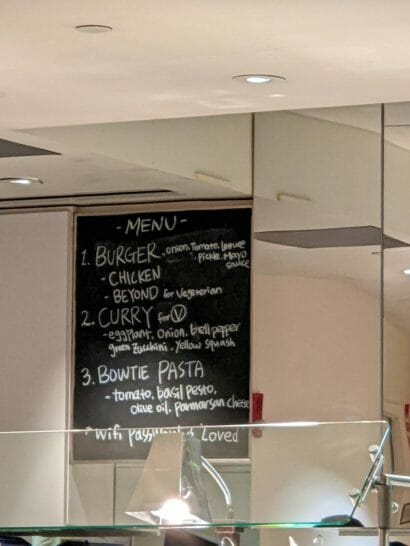 - MENU -
1. BURGER - onion, Tomato, lettuce
. pickle. Mayo
sauce
- CHICKEN
- BEYOND for Vegetarian
2. CURRY for Ⓥ
- eggplant, Onion, bell pepper
green Zucchini, Yellow squash
3. BOWTIE PASTA
- tomato, basil pesto,
olive oil, parmarsan cheese
* Wifi Loved